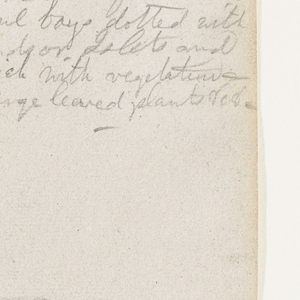 bays dotted with
Islets and
with vegetation
leaved plants &c &c